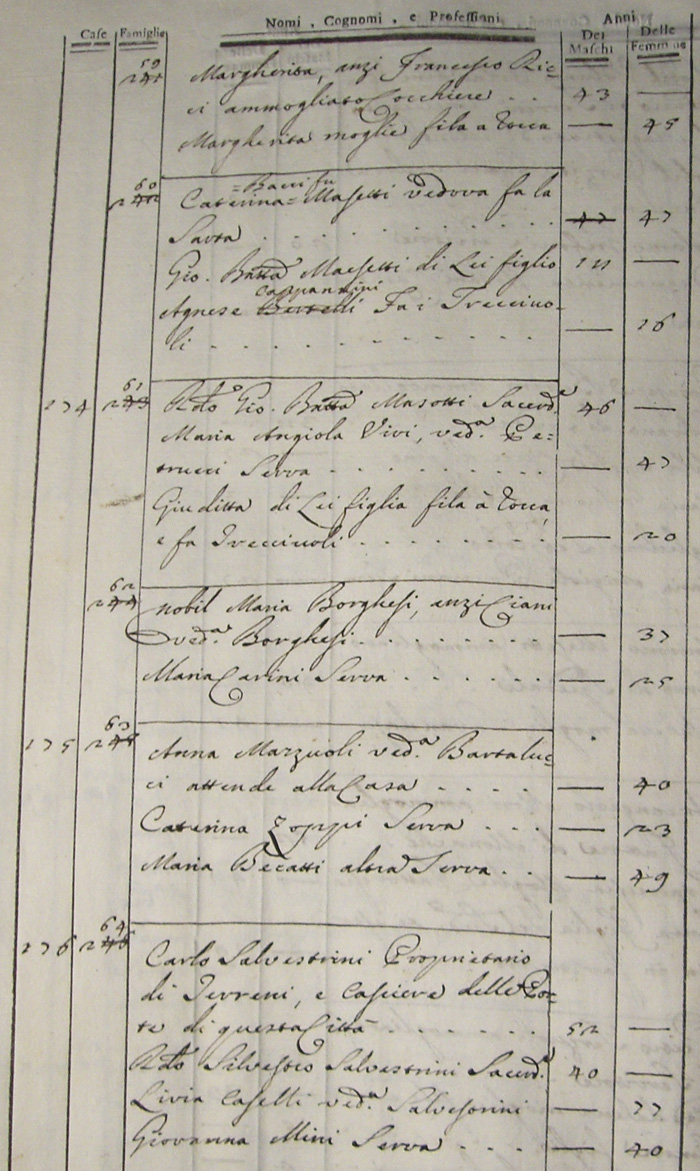 Case Famiglie Nomi, Cognomi, e Professioni Anni Dei Maschi Delle Femmine
59
241 Margherita, anzi Francesco Ric=
ci ammogliato Cocchiere . . 43 —
Margherita moglie fila a Rocca — 45
60 = Bacci fu
242 Caterina = Masetti vedova fa la
Sarta . . . . . . . 47 47
Gio. Batta Masetti di Lei figlio —
Cappannini
Agnese Bertelli Fa i Treccivo-
li . . . . . . . . . — 16
61
174 243 Rdo Gio. Batta Masotti Sacerd.e 46 —
Maria Angiola Vivi, ved.a Pe=
trucci Serva . . . . . . . — 47
Giuditta di Lei figlia fila à Rocca,
e fa Treccivoli . . . . . . . — 20
62
244 nobil Maria Borghesi, anzi Ciani
ved.a Borghesi . . . . . . . — 37
Maria Carini Serva . . . . . — 25
63
175 245 Anna Mazzuoli ved.a Bartaluc=
ci attende alla Casa . . . . — 40
Caterina Zoppi Serva . . . — 23
Maria Becatti altra Serva . . — 49
64
176 246 Carlo Salvestrini Proprietario
di Terreni, e Cassiere delle Po=
ste di questa Città . . . . . . 52 —
Rdo Silvestro Salvestrini Sacerd.e 40 —
Livia Caselli ved.a Salvestrini — 77
Giovanna Mini Serva . . . — 40